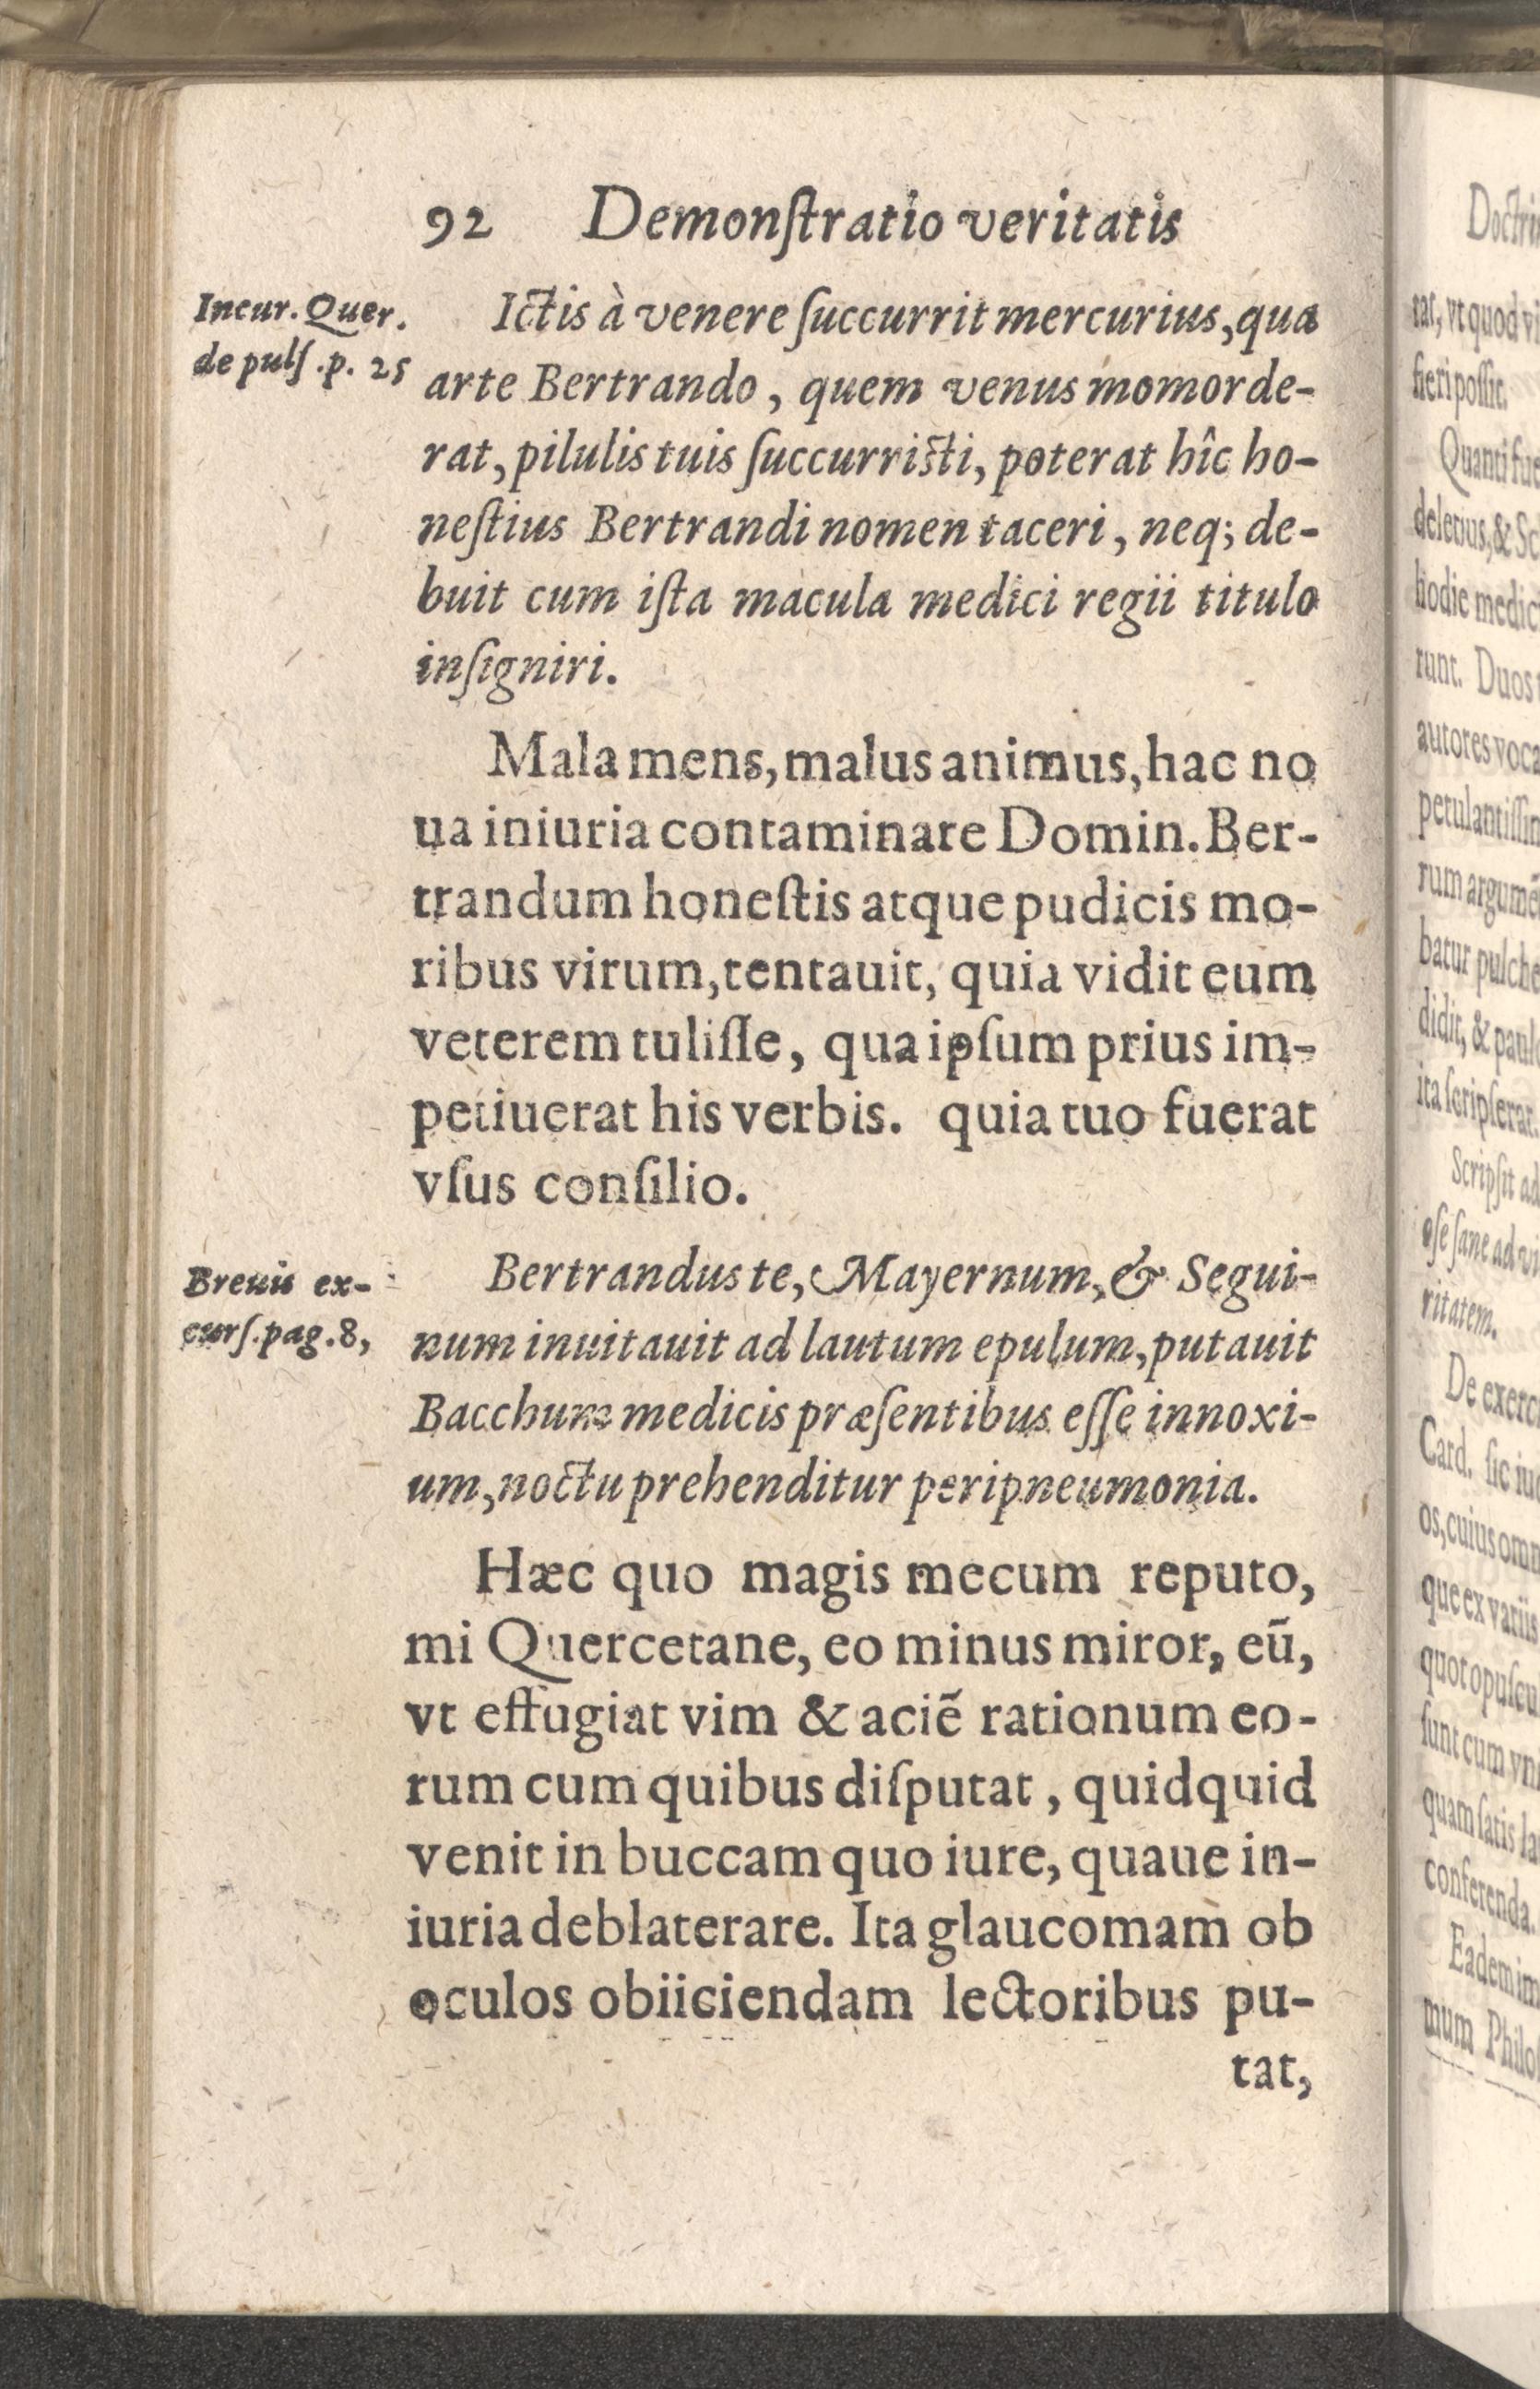 92 Demonſtratio veritatis
Incur. Quer.
de pulſ. p. 25
Ictis à venere ſuccurrit mercurius, qua
arte Bertrando, quem venus momorde-
rat, pilulis tuis ſuccurristi, poterat hîc ho-
neſtius Bertrandi nomen taceri, neq; de-
buit cum iſta macula medici regii titulo
inſigniri.
Mala mens, malus animus, hac no
ua iniuria contaminare Domin. Ber-
trandum honeſtis atque pudicis mo-
ribus virum, tentauit, quia vidit eum
veterem tuliſſe, qua ipſum prius im-
petiuerat his verbis. quia tuo fuerat
vſus conſilio.
Breuis ex-
curſ. pag. 8,
Bertrandus te, Mayernum, & Segui-
num inuitauit ad lautum epulum, putauit
Bacchum medicis præſentibus eſſe innoxi-
um, noctu prehenditur peripneumonia.
Hæc quo magis mecum reputo,
mi Quercetane, eo minus miror, eū,
vt effugiat vim & aciẽ rationum eo-
rum cum quibus diſputat, quidquid
venit in buccam quo iure, quaue in-
iuria deblaterare. Ita glaucomam ob
oculos obiiciendam lectoribus pu-
tat,
Doctrin
rat, vt quod vi
fieri poſſit.
Quanti fue
deletius, & Sc
hodie medic
runt. Duos
autores voca
petulantiſſim
rum argumẽ
batur pulche
didit, & paul
ita ſcripſerat.
Scripſit ad
oſe ſane ad vi
ritatem.
De exerc
Card. ſic iu
os, cuius omn
que ex variis
quot opuſcu
ſunt cum vn
quam ſatis la
conferenda.
Eadem im
mum Philoſ